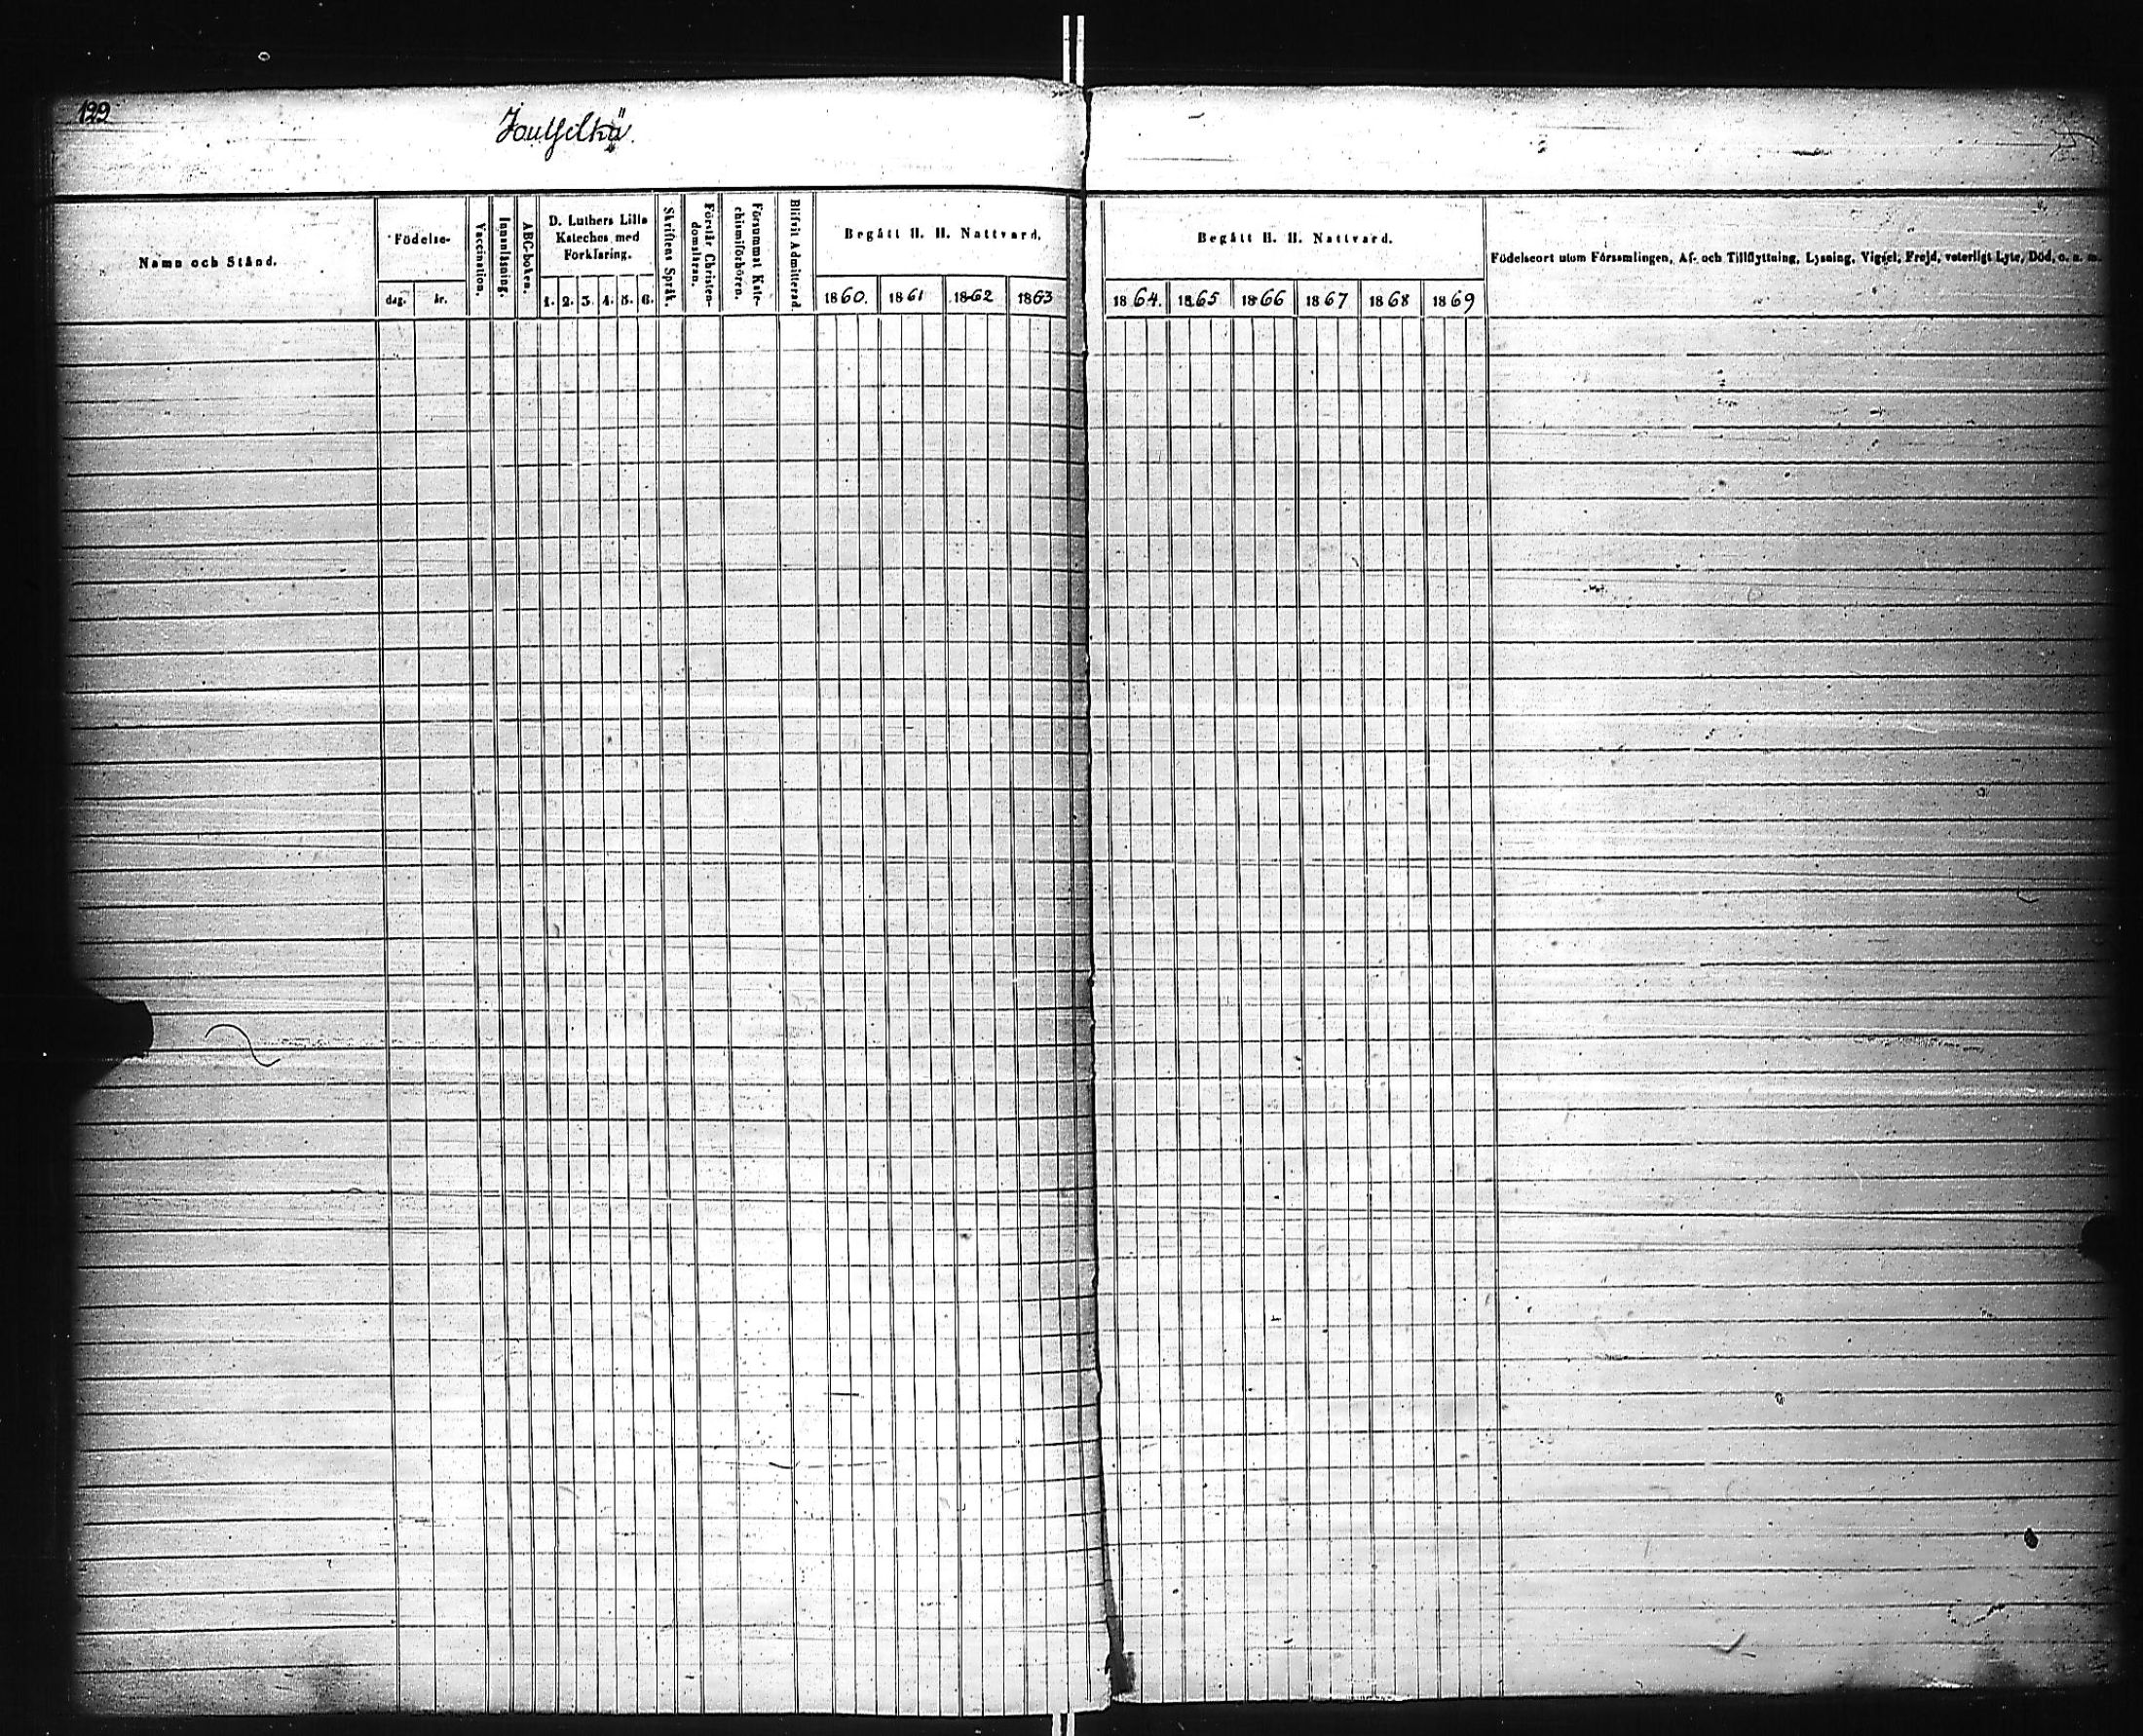 129
Joutselkä.
Namn och Stånd.
Födelse-
dag. år.
Vaccination.
Innanläsning.
ABC-boken.
D. Luthers Lilla
Kateches med
Förklaring.
1. 2. 3. 4. 5. 6.
Skriftens Språk.
Förstår Christen-
domsläran.
Försummat Kate-
chismiförhören.
Blifvit Admitterad.
Begått H. H. Nattvard.
1860. 1861 1862 1863
Begått H. H. Nattvard.
1864. 1865 1866 1867 1868 1869
Födelseort utom Församlingen, Af- och Tillflyttning, Lysning, Vigsel, Frejd, veterligt Lyte, Död, o. s. m.